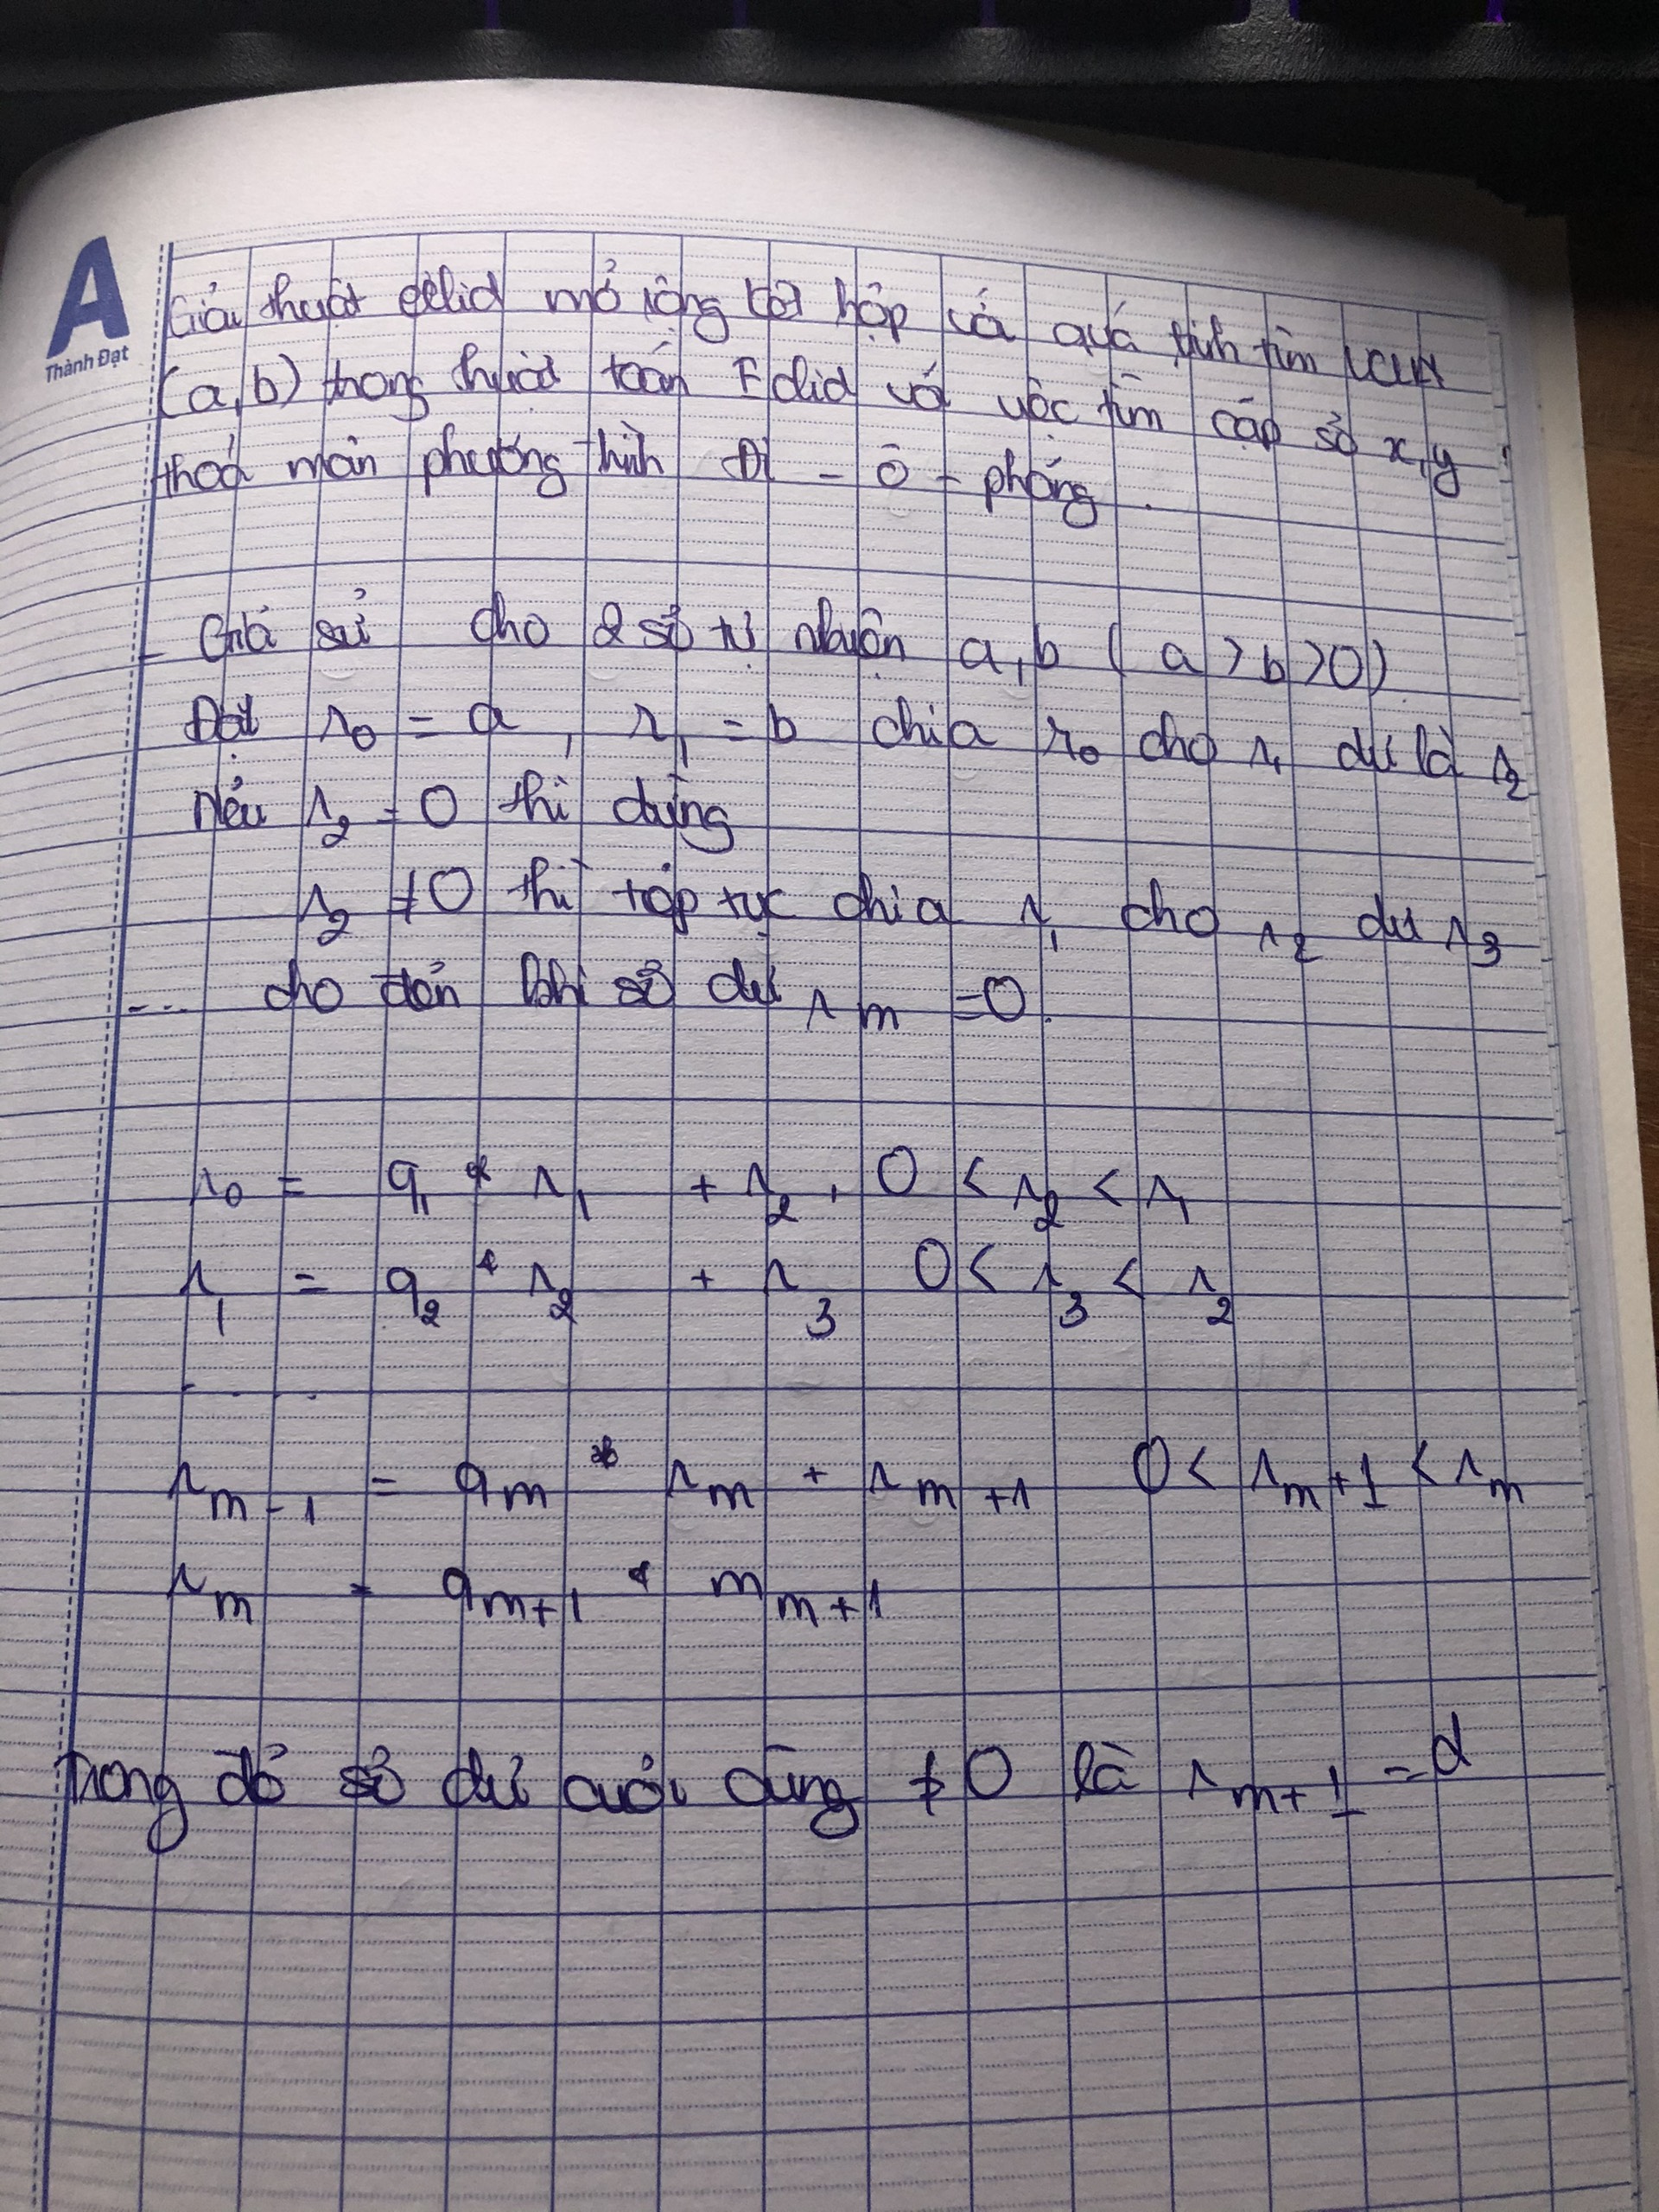 A
Thành Đạt
Giải thuật eclid mở rộng kết hợp cả quá trình tìm UCLN
(a,b) trong thuật toán Eclid với việc tìm cặp số x,y
thoả mãn phương trình Đi - ô - phăng.
- Giả sử cho 2 số tự nhiên a,b (a > b > 0)
Đặt r₀ = a, r₁ = b chia r₀ cho r₁ dư là r₂
Nếu r₂ = 0 thì dừng
r₂ ≠ 0 thì tiếp tục chia r₁ cho r₂ dư r₃
... cho đến khi số dư rₘ = 0.
r₀ = q₁ * r₁ + r₂, 0 < r₂ < r₁
r₁ = q₂ * r₂ + r₃ 0 < r₃ < r₂
....
rₘ₋₁ = qₘ * rₘ + rₘ₊₁ 0 < rₘ₊₁ < rₘ
rₘ = qₘ₊₁ * mₘ₊₁
Trong đó số dư cuối cùng ≠ 0 là rₘ₊₁ = d